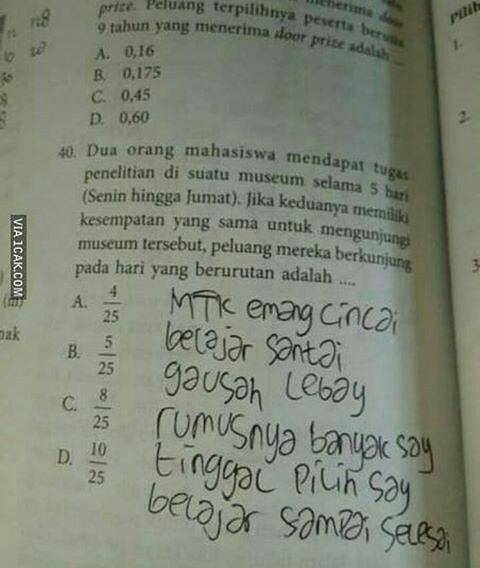 prize. Peluang terpilihnya peserta
9 tahun yang menerima door prize adalah ...
A. 0,16
B. 0,175
C. 0,45
D. 0,60
40. Dua orang mahasiswa mendapat tugas
penelitian di suatu museum selama 5 hari
(Senin hingga Jumat). Jika keduanya memiliki
kesempatan yang sama untuk mengunjungi
museum tersebut, peluang mereka berkunjung
pada hari yang berurutan adalah ....
A. 4/25
B. 5/25
C. 8/25
D. 10/25
MTK emang cincai
belajar santai
gausah lebay
rumusnya banyak say
tinggal pilih say
belajar sampai selesai
VIA 1CAK.COM